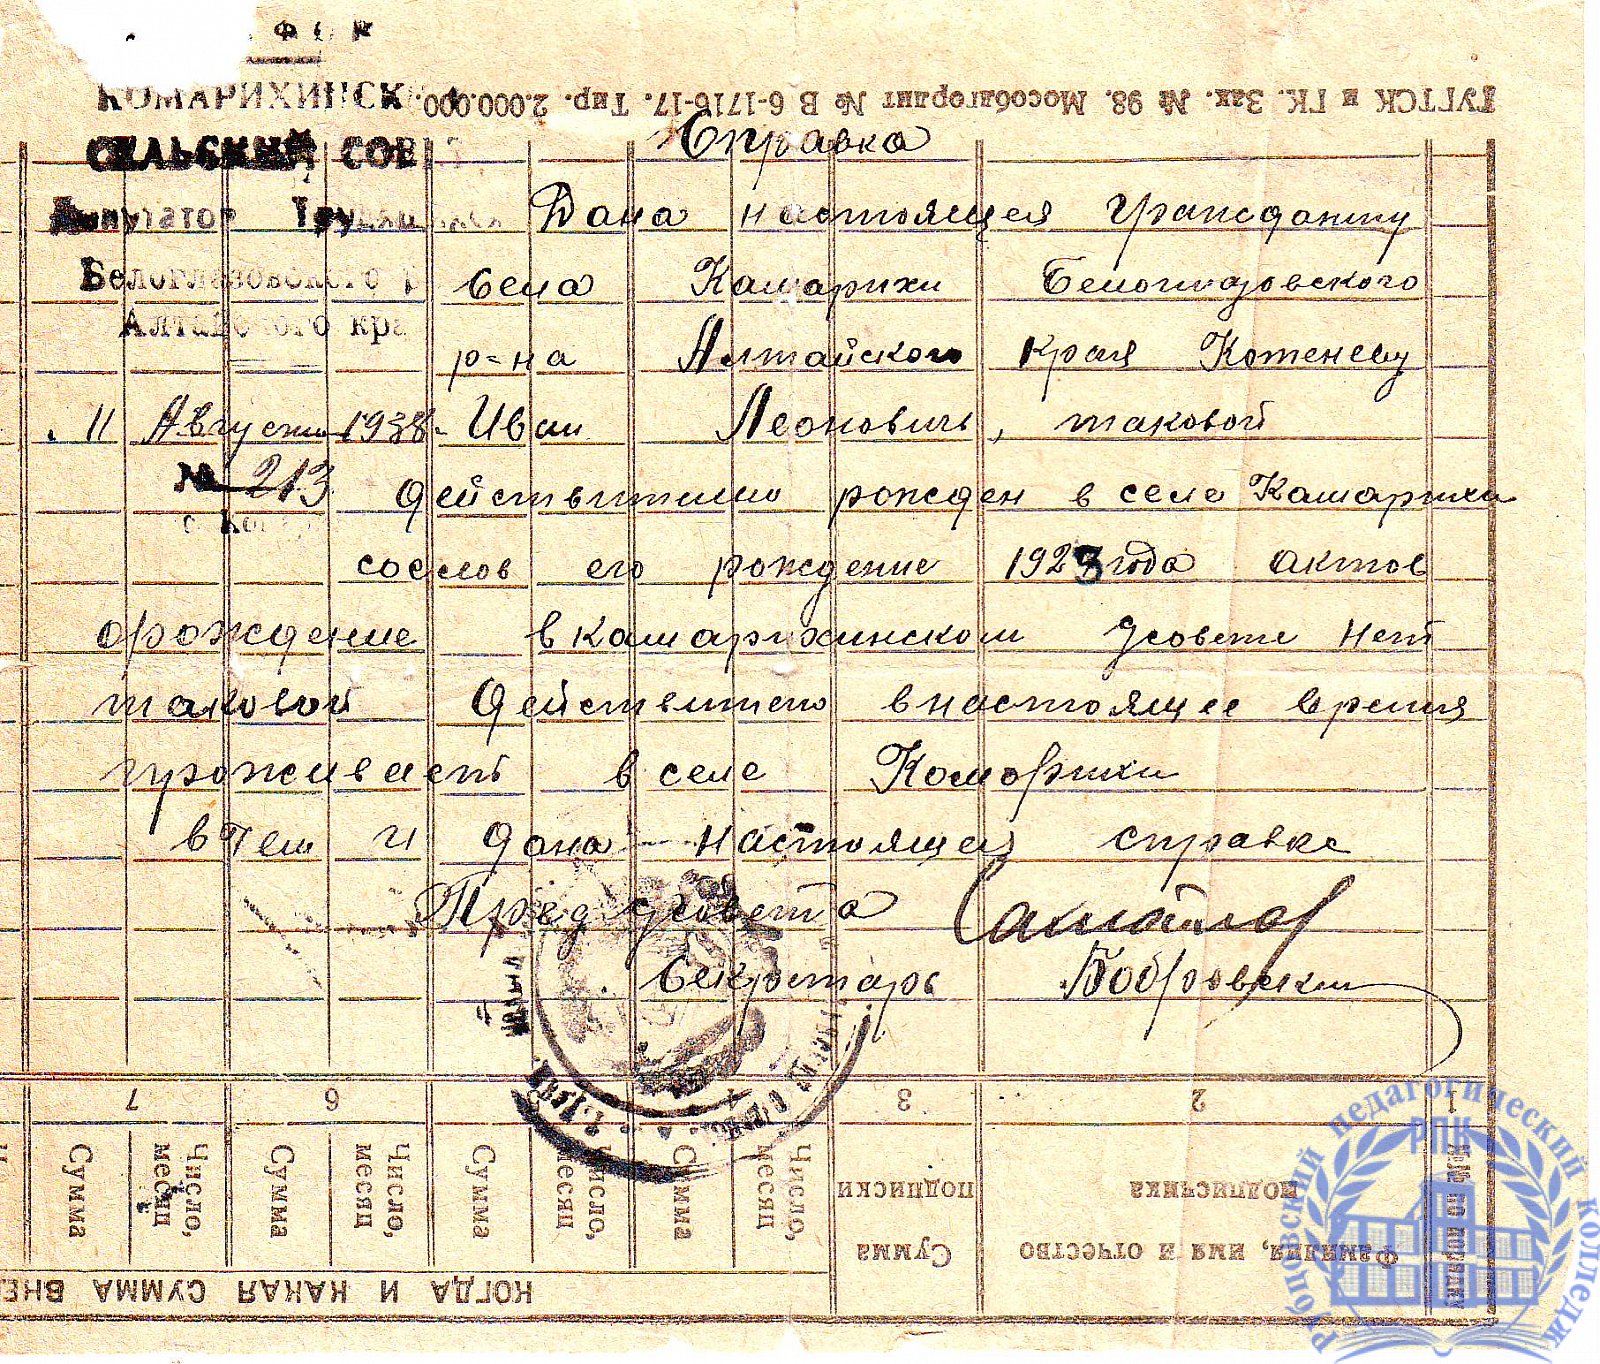 КОМАРИХИНСК
СЕЛЬСКИЙ СОВ
Депутатов Трудящ
Белоглазовского р
Алтайского кра
11 Августа 1938.
№ 213
ГУГТСК и ГК. Зак. № 98. Мособлгорлит № В 6-1716-17. Тир. 2.000.000.
Справка
Дана настоящея Гражданину
села Камарихи Белоглазовского
р-на Алтайского края Коженеву
Иван Леонович, таковой
действительно рожден в селе Камарихи
со слов его рождение 1923 года актов
о рождение в камарихинском с/совете нет
таковой действително в настоящее время
проживает в селе Комарихи
в тем и дана настоящея справка
Пред с/совета
Секретарь Бобровский
1 2 3 4 6 7
№№ по порядку
Фамилия, имя и отчество подписчика
Сумма подписки
Число, месяц
Сумма
Число, месяц
Сумма
Число, месяц
Сумма
Число, месяц
Сумма
КОГДА И КАКАЯ СУММА ВНЕ
Рубцовский педагогический колледж
РПК